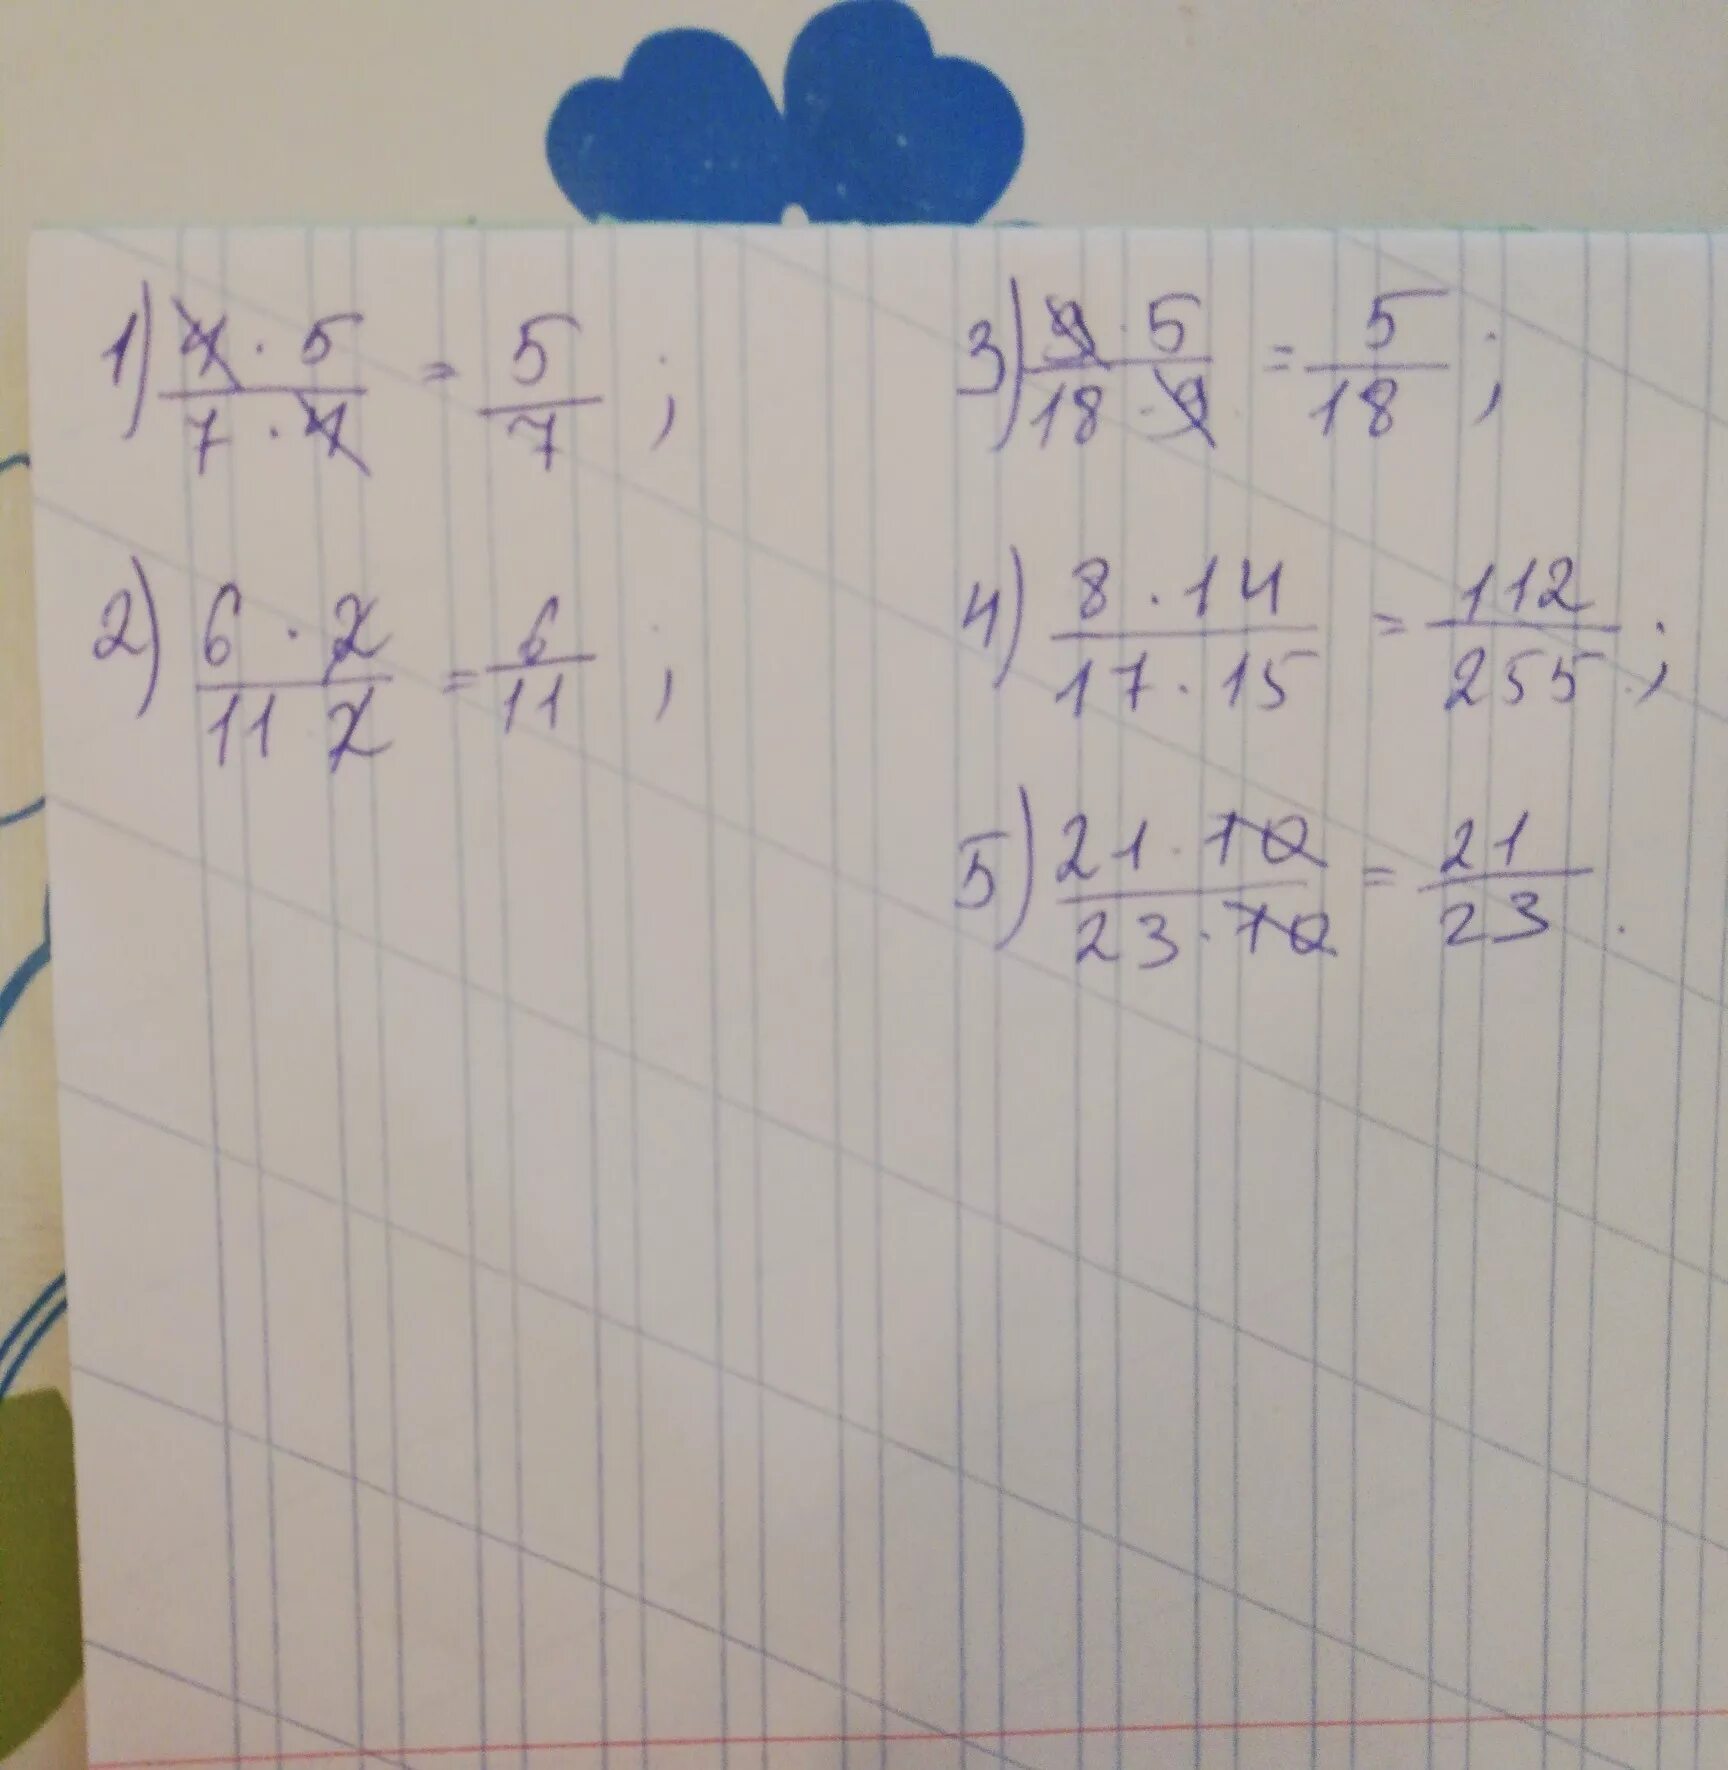 1) 4 · 5 / 7 · 4 = 5 / 7 ;
2) 6 · 2 / 11 · 2 = 6 / 11 ;
3) 9 · 5 / 18 · 9 = 5 / 18 ;
4) 8 · 14 / 17 · 15 = 112 / 255 ;
5) 21 · 10 / 23 · 10 = 21 / 23 .